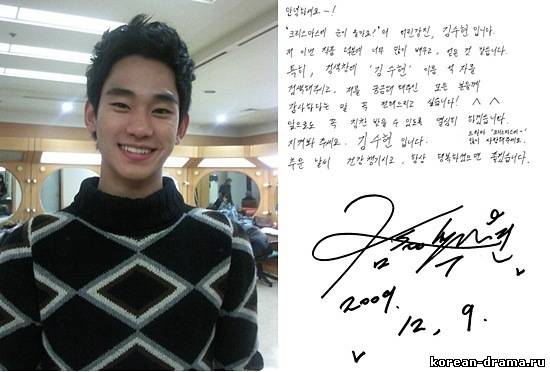 안녕하세요~!
"크리스마스에 눈이 올까요?"의 어린강진, 김수현입니다.
저 이번 작품 덕분에 너무 많이 배우고, 얻은 것 같습니다.
특히, 검색창에 '김수현' 이름 석 자를
검색해주시고, 저를 궁금해 해주신 모든 분들께
감사하다는 말 꼭 전해드리고 싶습니다! ^^
앞으로도 꼭 칭찬 받을 수 있도록 열심히 하겠습니다.
지켜봐 주세요. 김수현입니다.
추운 날씨 건강 챙기시고, 항상 행복하셨으면 좋겠습니다.
김수현
2009.
12, 9.
korean-drama.ru